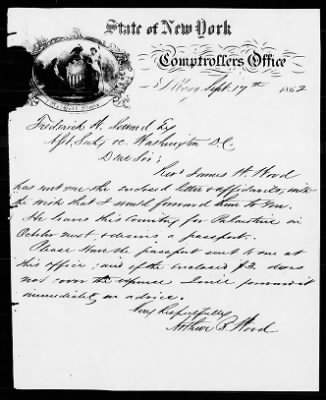 State of New York
Comptrollers Office
Albany Sept. 17th 1862
Frederick W. Seward Esq
Asst. Secy &c. Washington D.C.
Dear Sir;
Rev. James H. Wood
has sent me the enclosed letter & affidavits, with
the wish that I would forward them to you.
He leaves this Country for Palestine in
October next & desires a passport.
Please have the passport sent to me at
this office; and if the enclosed $3. does
not cover the expense I will forward it
immediately on advice.
Very Respectfully
Arthur B. Wood